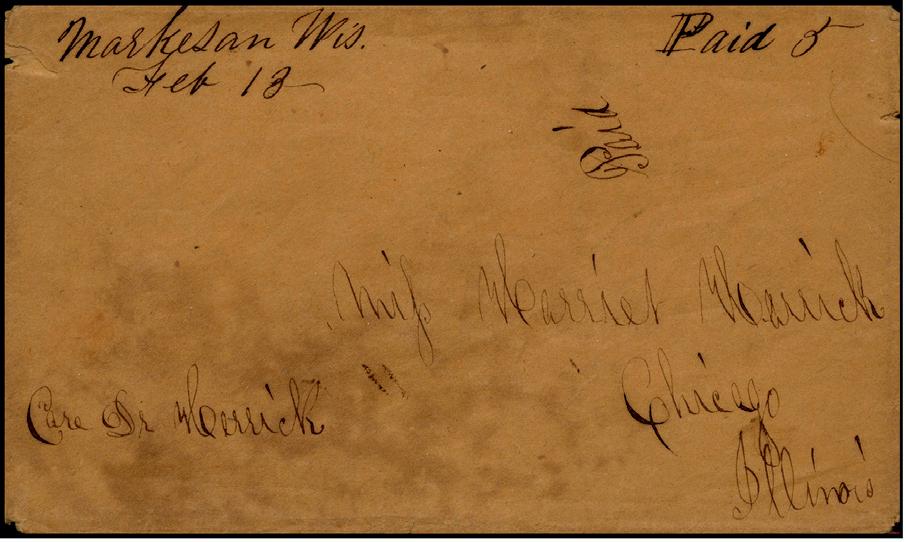 Markesan Wis.
Feb 13
Paid 5
Paid
Miss Harriet Herrick
Chicago
Illinois
Care Dr Herrick